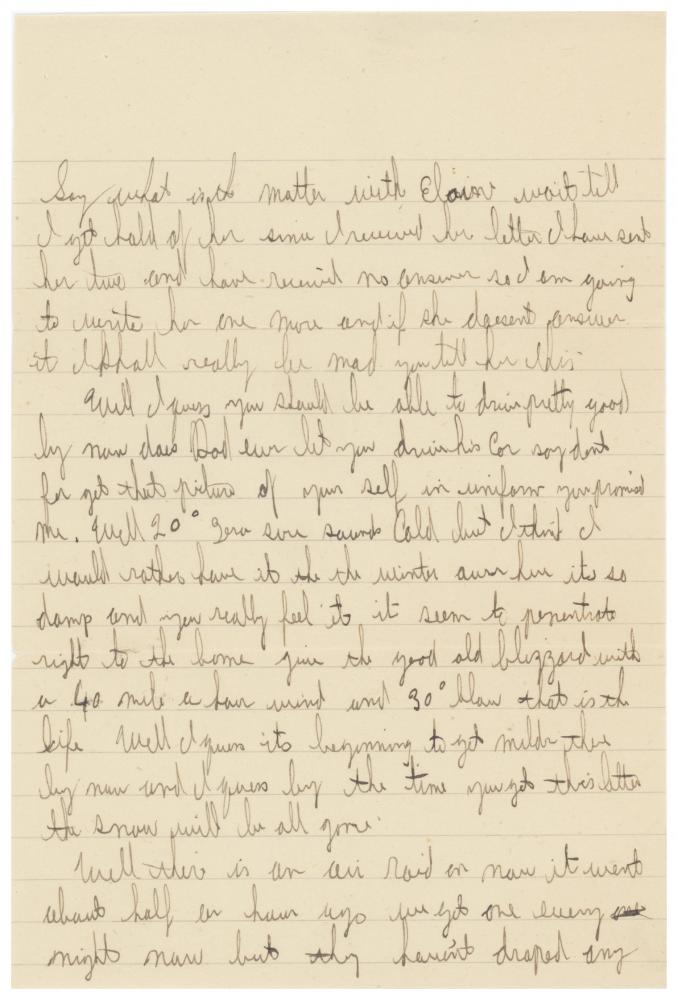 Say what is th matter with Elaine wait till
I get hold of her since I received her letter I have sent
her two and have received no answer so I am going
to write her one more and if she doesent answer
it I shall really be mad you tell her this.
Well I guess you should be able to drive pretty good
by now does Dad ever let you drive his Car say dont
for get that picture of your self in uniform you promised
me. Well 20° Zero sure sounds Cold but I think I
would rather have it the the winter over here its so
damp and you really feel it it seem to penentrate
right to the bone give the good old blizzard with
a 40 mile a hour wind and 30° blow that is the
life Well I guess its beginning to get milder there
by now and I guess by the time you get this letter
the snow will be all gone.
Well there is an air Raid on now it went
about half an hour ago we get one every
night now but they haven't droped any